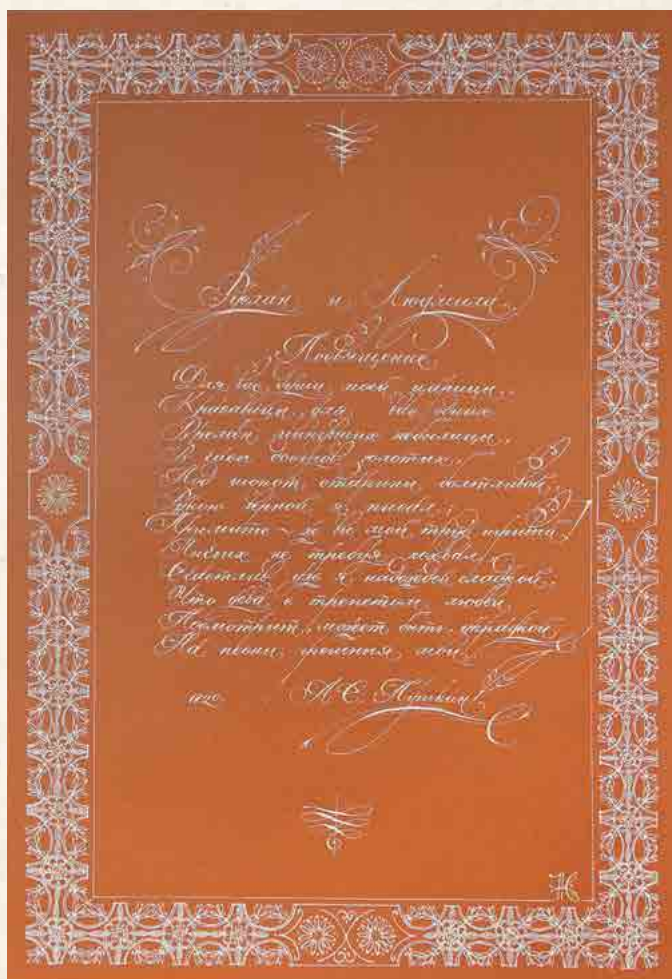 Руслан и Людмила
Посвящение
Для вас, души моей царицы,
Красавицы, для вас одних
Времен минувших небылицы,
В часы досугов золотых,
Под шопот старины болтливой,
Рукою верной я писал;
Примите ж вы мой труд игривый!
Ничьих не требуя похвал,
Счастлив уж я надеждой сладкой,
Что дева с трепетом любви
Посмотрит, может быть, украдкой
На песни грешныя мои.
1820. А. С. Пушкин